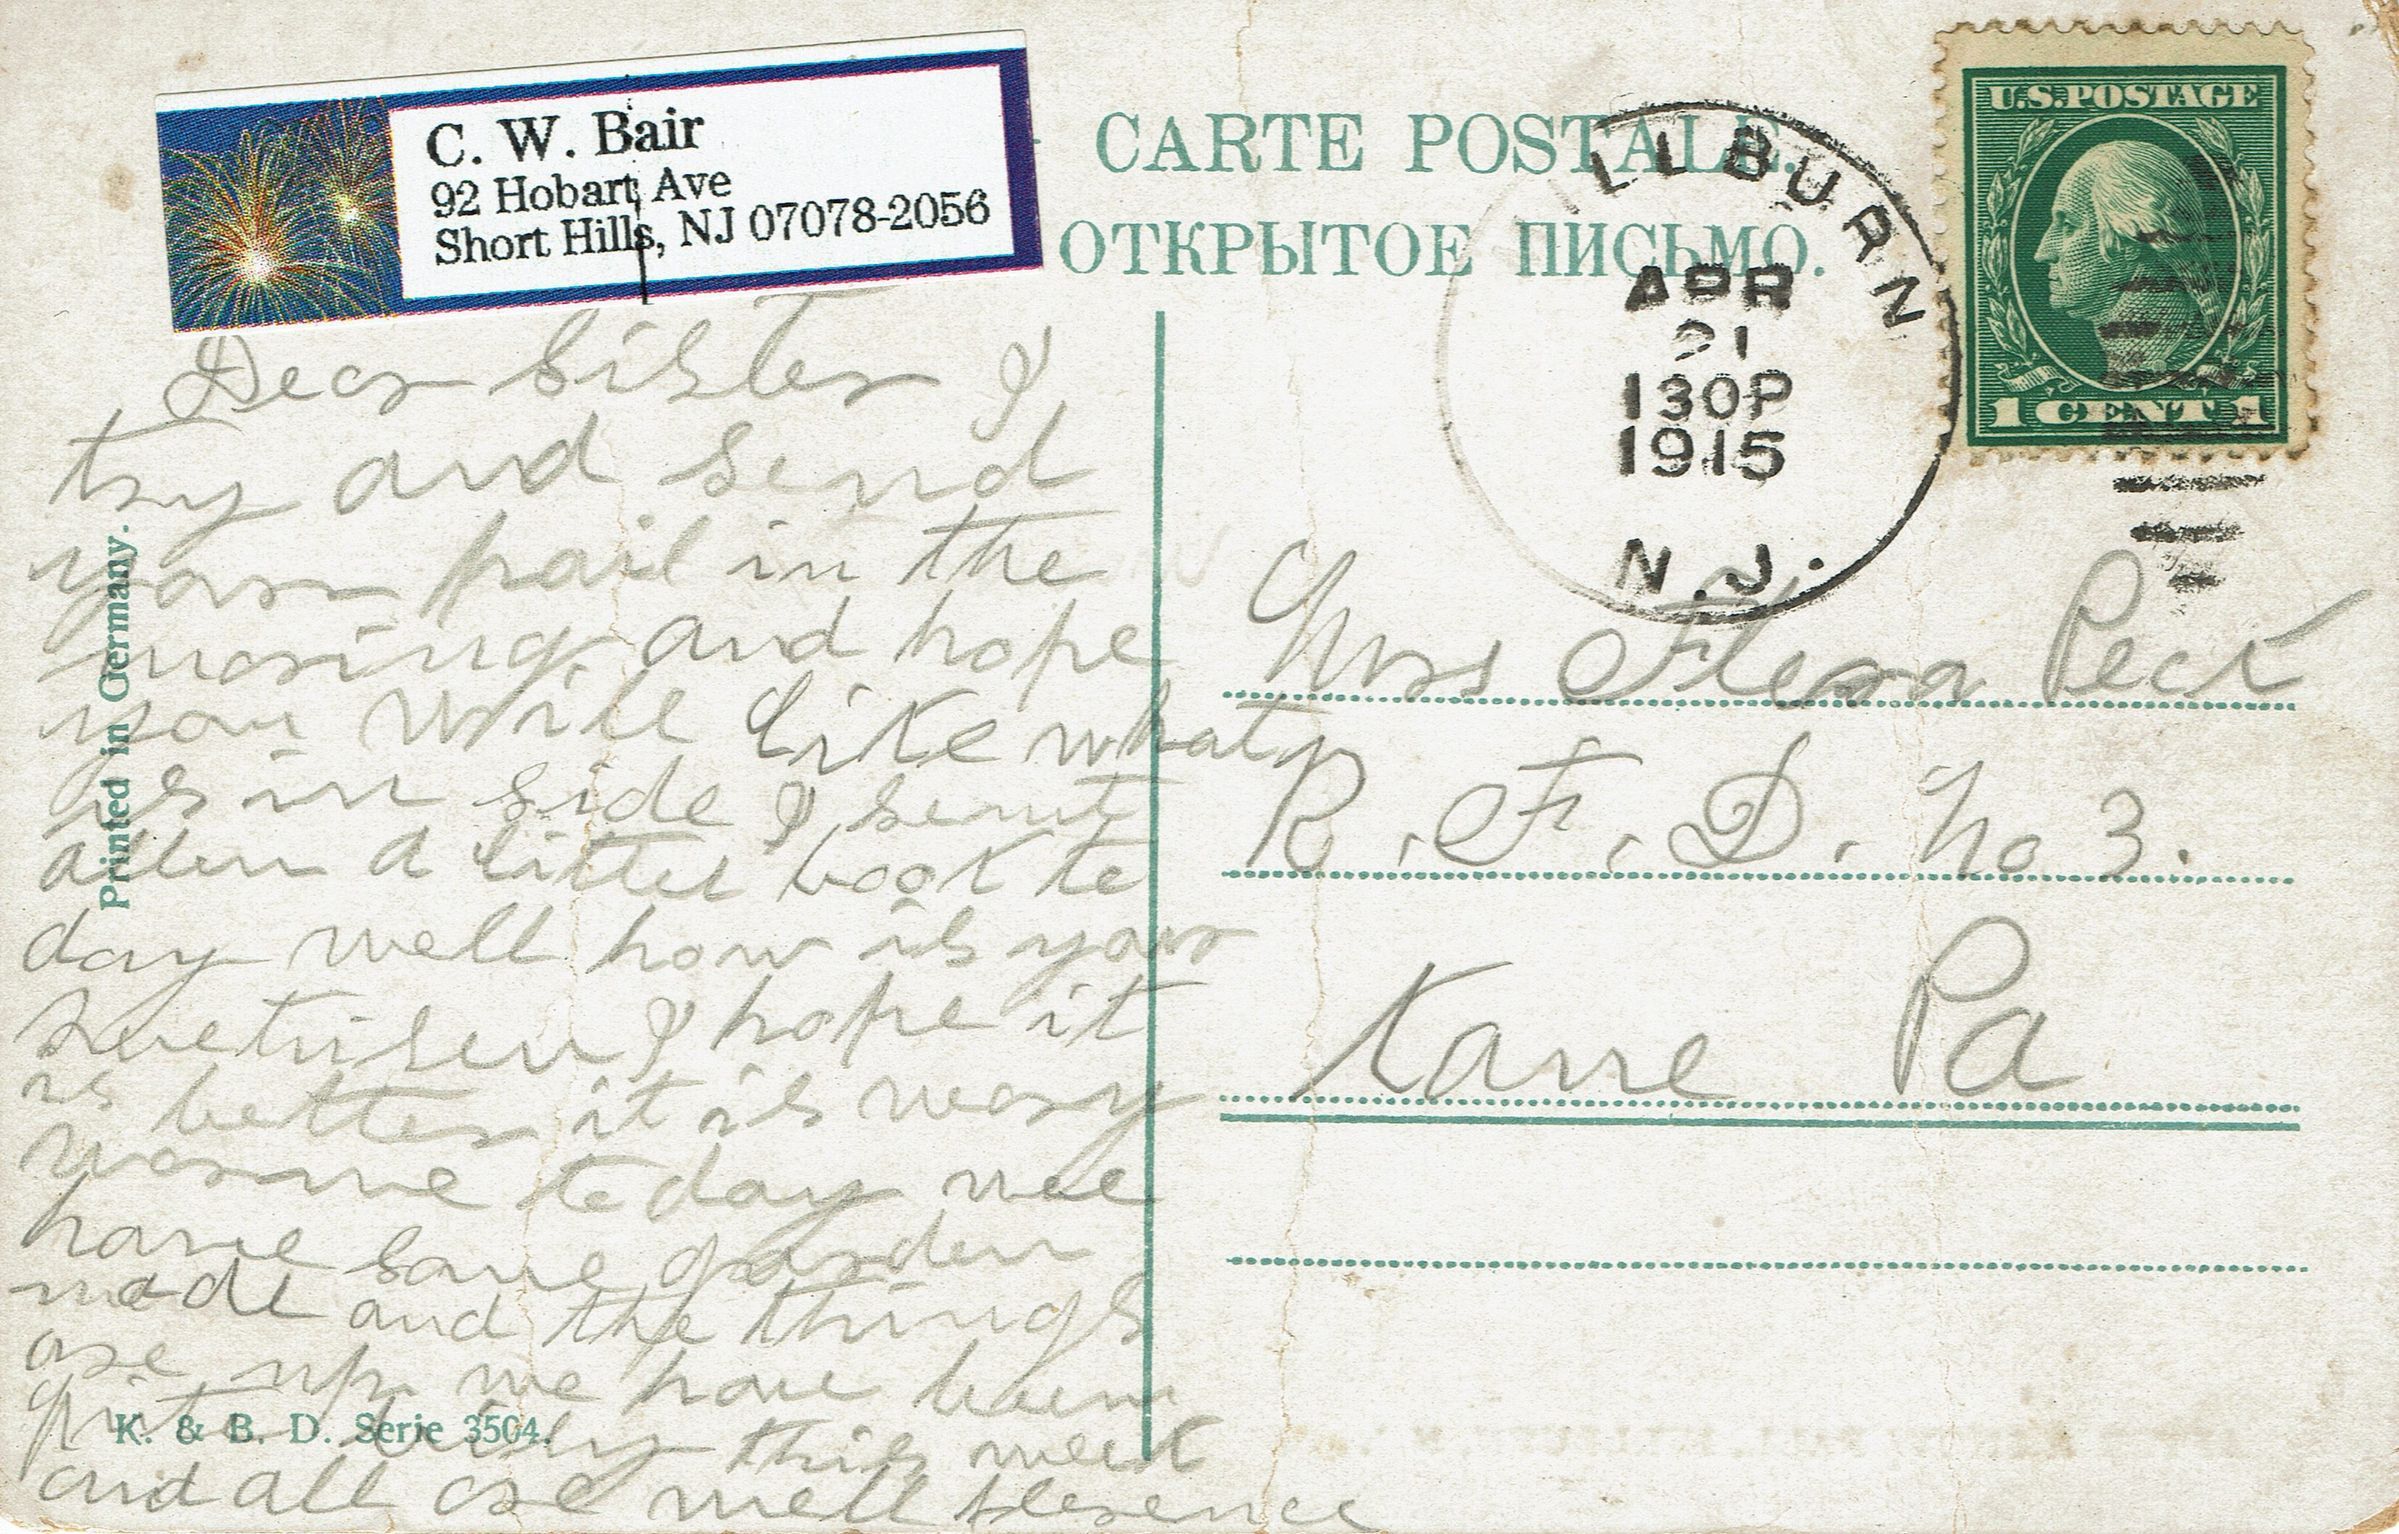 C. W. Bair
92 Hobart Ave
Short Hills, NJ 07078-2056
CARTE POSTALE.
ОТКРЫТОЕ ПИСЬМО.
U.S. POSTAGE
1 CENT 1
ILLBURN
APR
21
130P
1915
N.J.
Dear Sister I
try and send
your pail in the
moring and hope
you will like what
is in side I sent
allen a littel book to
day well how is your
I hope it
is better it is very
worme to day wee
have some garden
made and the things
are up we have been
quite busy this week
and all are well
Mrs Flora Peck
R. F. D. No 3.
Kane Pa
Printed in Germany.
K. & B. D. Serie 3504.